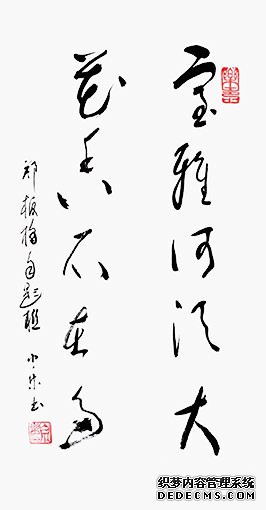 室雅何须大
花香不在多
郑板桥自题联
书
织梦内容管理系统
DEDECMS.COM